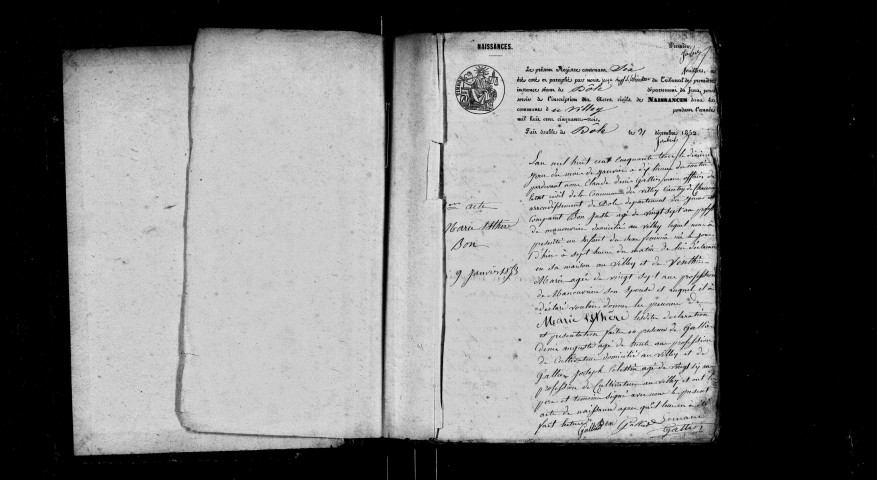 NAISSANCES.
Premier
Le présent Registre contenant Six feuillets, a
été coté et paraphé par nous juge du Tribunal de première
instance séant de Dôle département du Jura, pour
servir de l'inscription des Actes civils de NAISSANCES dans la
commune de Villey pendant l'année
mil huit cent cinquante-trois.
Fait double de Dôle le 31 décembre 1852
L'an mil huit cent cinquante trois le dixième
jour du mois de janvier à dix heures du matin
pardevant nous Claude denis Gallier maire officier
de l'Etat civil de la Commune du villey Canton de
arrondissement de Dole département du Jura
Comparut Bon Juste agé de vingt sept ans profession
de manouvrier domicilié au villey lequel nous a
présenté un Enfant du sexe féminin né le jour
d'hier à sept heures du matin de lui déclarant
en sa maison au villey et de
Marie agée de vingt sept ans profession
de Manouvrière son épouse et auquel il a
déclaré vouloir donner les prénoms de
Marie Esthère lesdite declaration
et presentation faite en presence de
denis auguste agé de trente ans profession
de Cultivateur domicilié au villey et de
Joseph Celestin agé de vingt six ans
profession de Cultivateur au villey et ont les
pere et temoins signé avec nous le present
acte de naissance apres qu'il leur en a été
fait lecture Bon
1er acte
Marie Esthère
Bon
9 Janvier 1853